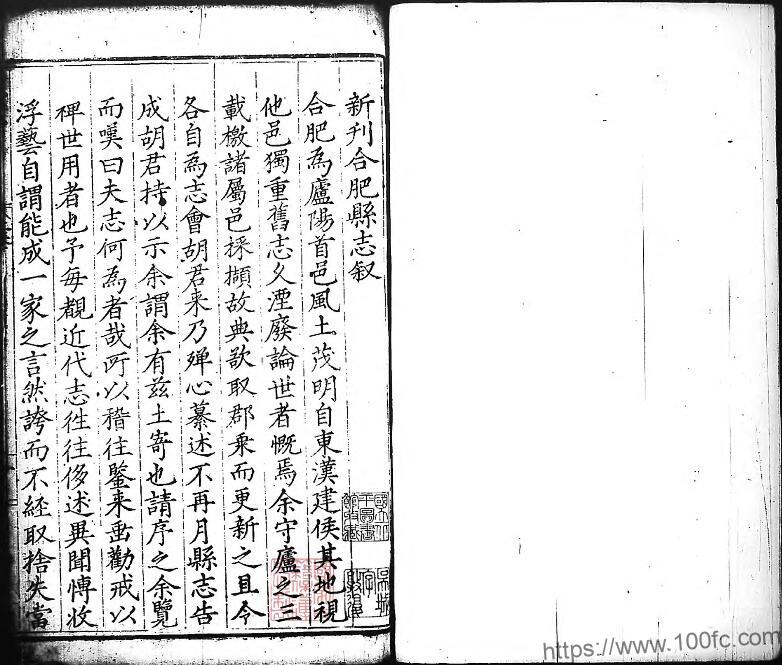 新刊合肥縣志叙
合肥為廬陽首邑風土茂明自東漢建侯其地視
他邑獨重舊志久湮廢論世者慨焉余守廬之三
載檄諸屬邑採擷故典欲取郡乗而更新之且令
各自為志會胡君来乃殫心纂述不再月縣志告
成胡君持以示余謂余有茲土寄也請序之余覽
而嘆曰夫志何為者哉所以稽往鑒来垂勸戒以
裨世用者也予每覩近代志徃往侈述異聞慱收
浮藝自謂能成一家之言然誇而不経取捨失當
https://www.100fc.com